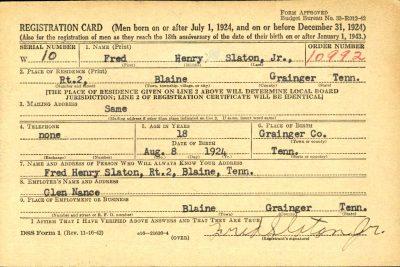 FORM APPROVED
Budget Bureau No. 33-R012-42
REGISTRATION CARD (Men born on or after July 1, 1924, and on or before December 31, 1924)
(Also for the registration of men as they reach the 18th anniversary of the date of their birth on or after January 1, 1943.)
SERIAL NUMBER 1. NAME (Print) ORDER NUMBER
W 10 Fred Henry Slaton, Jr., 10992
(First) (Middle) (Last)
2. PLACE OF RESIDENCE (Print)
Rt.2, Blaine Grainger Tenn.
(Number and street) (Town, township, village, or city) (County) (State)
[THE PLACE OF RESIDENCE GIVEN ON LINE 2 ABOVE WILL DETERMINE LOCAL BOARD
JURISDICTION; LINE 2 OF REGISTRATION CERTIFICATE WILL BE IDENTICAL]
3. MAILING ADDRESS
Same
[Mailing address if other than place indicated on line 2. If same, insert word same]
4. TELEPHONE 5. AGE IN YEARS 6. PLACE OF BIRTH
none 18 Grainger Co.
DATE OF BIRTH (Town or county)
Aug. 8 1924 Tenn.
(Exchange) (Number) (Mo.) (Day) (Yr.) (State or country)
7. NAME AND ADDRESS OF PERSON WHO WILL ALWAYS KNOW YOUR ADDRESS
Fred Henry Slaton, Rt.2, Blaine, Tenn.
8. EMPLOYER'S NAME AND ADDRESS
Glen Nance
9. PLACE OF EMPLOYMENT OR BUSINESS
Blaine Grainger Tenn.
(Number and street or R. F. D. number) (Town) (County) (State)
I AFFIRM THAT I HAVE VERIFIED ABOVE ANSWERS AND THAT THEY ARE TRUE.
DSS Form 1 (Rev. 11-16-42) (OVER) (Registrant's signature)